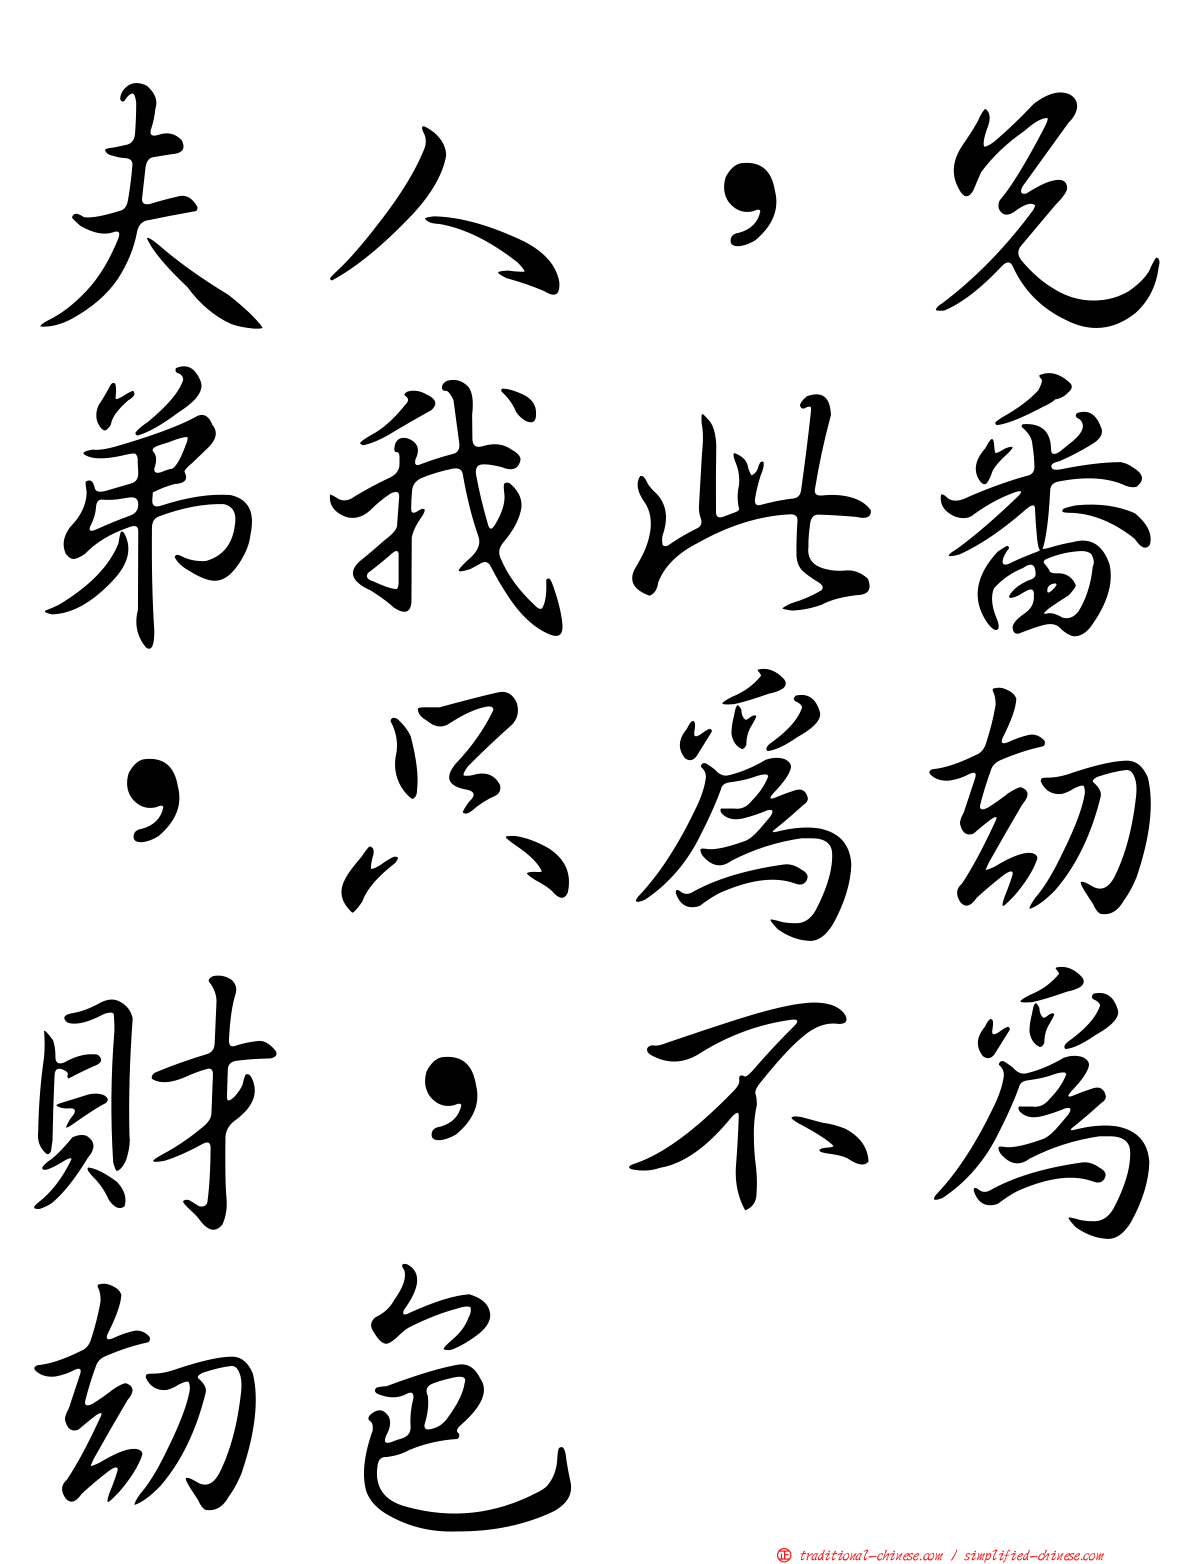 夫人，兄
弟我此番
，只為劫
財，不為
劫色
正 traditional-chinese.com / simplified-chinese.com